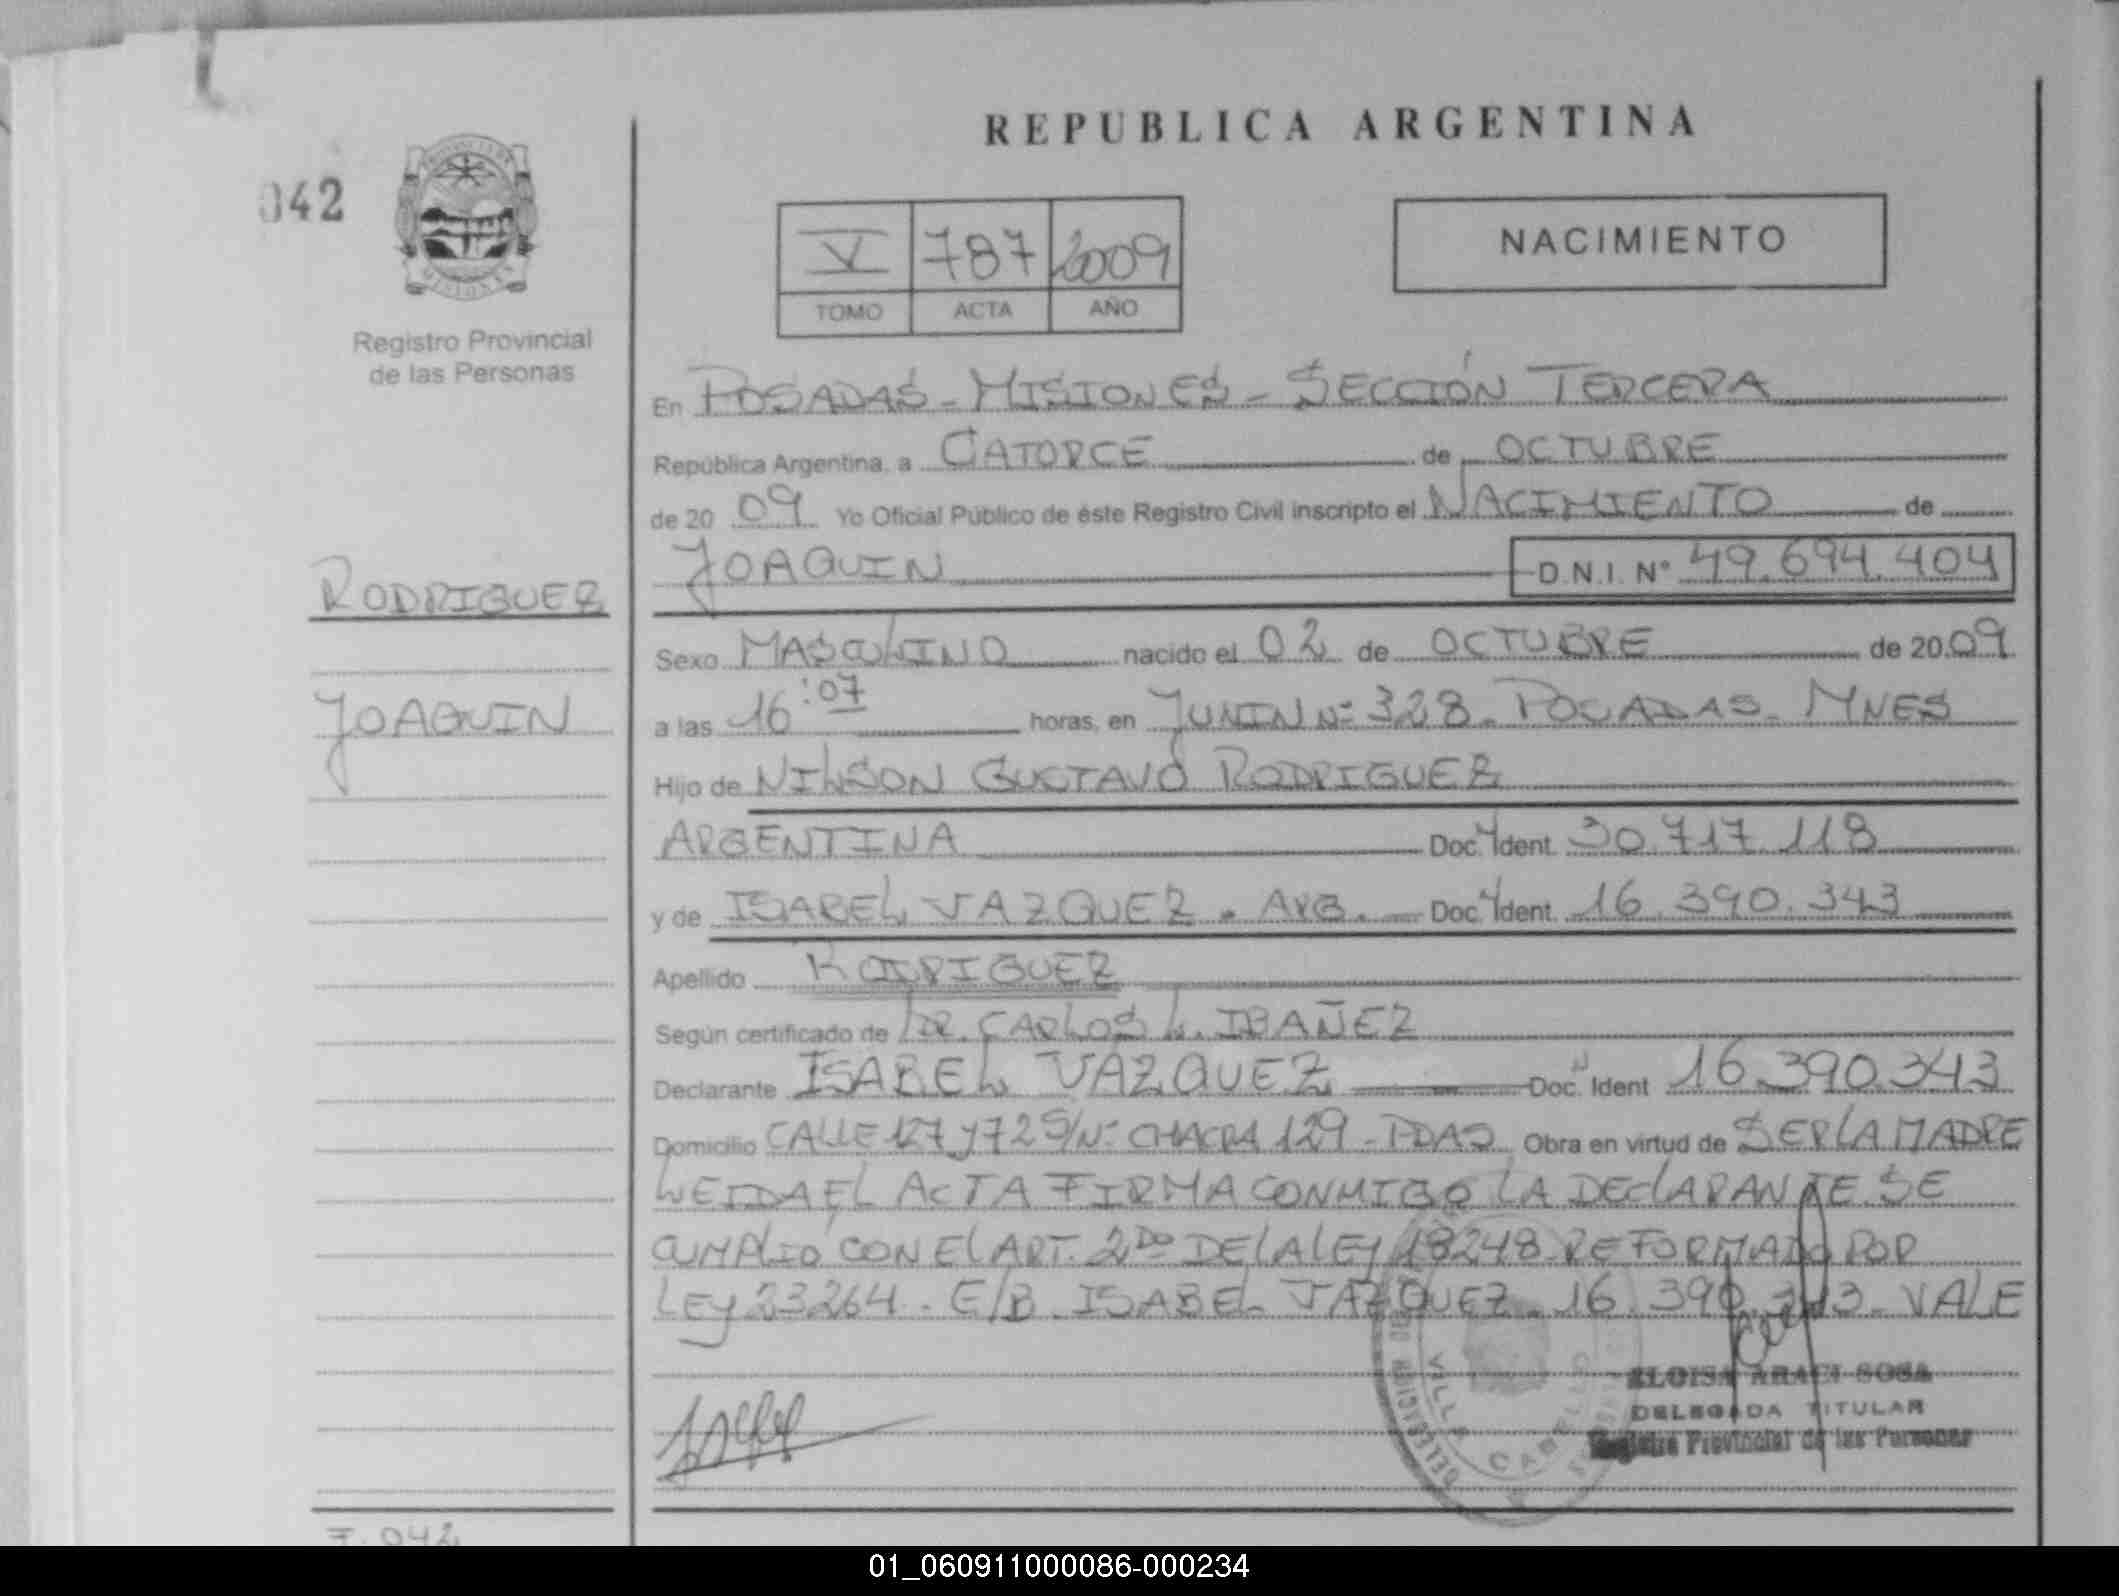 REPUBLICA ARGENTINA
042
PROVINCIA DE
MISIONES
Registro Provincial
de las Personas
V 787 2009
TOMO ACTA AÑO
NACIMIENTO
En POSADAS - MISIONES - SECCIÓN TERCERA
República Argentina, a CATORCE de OCTUBRE
de 20 09 Yo Oficial Público de éste Registro Civil inscripto el NACIMIENTO de
JOAQUIN D.N.I. N° 49.694.404
RODRIGUEZ
JOAQUIN
Sexo MASCULINO nacido el 02 de OCTUBRE de 20 09
a las 16:07 horas, en JUNIN Nº 328 - POSADAS - MNES
Hijo de NILSON GUSTAVO RODRIGUEZ
ARGENTINA Doc. Ident. 30.717.118
y de ISABEL VAZQUEZ - ARG. - Doc. Ident. 16.390.343
Apellido RODRIGUEZ
Según certificado de DR. CARLOS L. IBAÑEZ
Declarante ISABEL VAZQUEZ Doc. Ident 16.390.343
Domicilio CALLE 127 y 172 S/Nº CHACRA 129 - PDAS Obra en virtud de SER LA MADRE
LEIDA EL ACTA FIRMA CONMIGO LA DECLARANTE. SE
CUMPLIO CON EL ART. 2DO DE LA LEY 18248 REFORMADO POR
LEY 23264 - E/B ISABEL VAZQUEZ - 16.390.343 - VALE
VILLA CABELLO
ELOISA ARACI SOSA
DELEGADA TITULAR
Registro Provincial de las Personas
F. 042
01_060911000086-000234